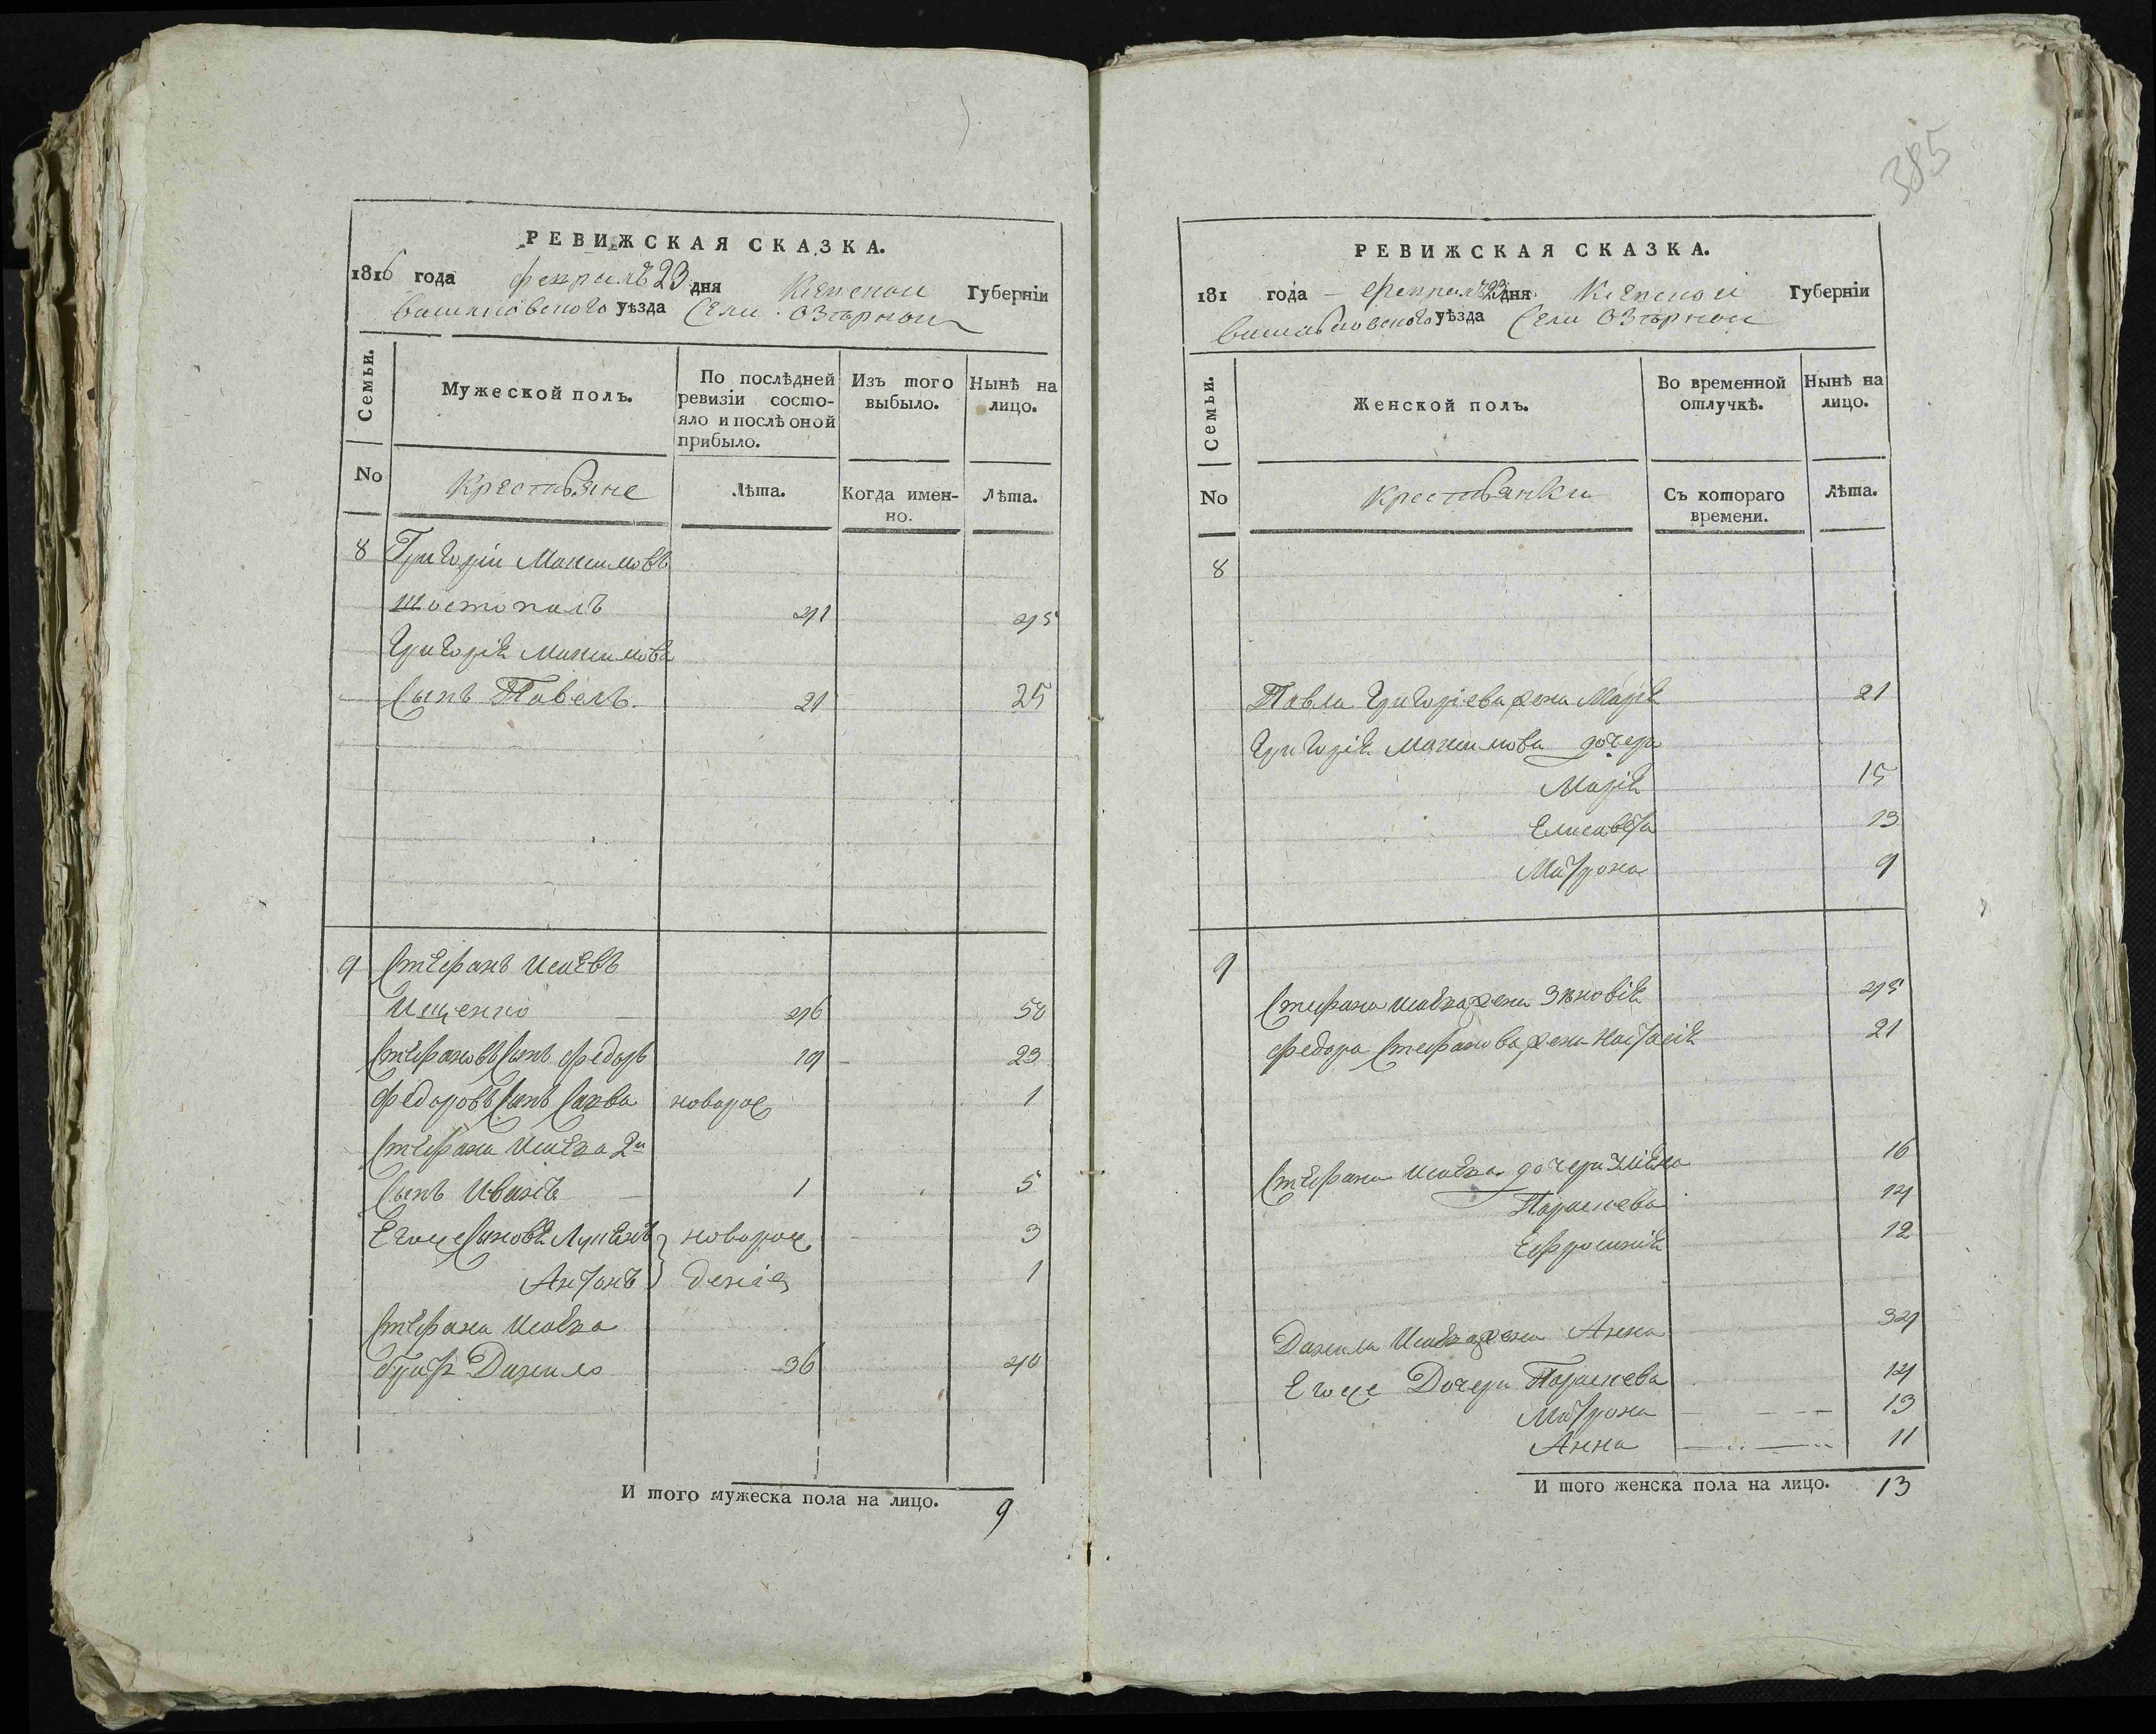 385
РЕВИЖСКАЯ СКАЗКА.
1816 года февраля 23 дня Киевской Губерніи
васильковского уѣзда Села Озѣрной
Семьи.
Мужеской полъ.
По послѣдней ревизіи состо-
яло и послѣ оной
прибыло.
Изъ того
выбыло.
Нынѣ на
лицо.
No
Крестьяне
Лѣта.
Когда имен-
но.
Лѣта.
8 Григорій Максимовъ
Шостопалъ 41 45
Григорія Максимова
Сынъ Павелъ 21 25
9 Стефанъ Исаевъ
Ищенко 46 50
Стефановъ Сынъ Федоръ 19 23
Федоровъ Сынъ Савва новорож 1
Стефана Исаева 2й
Сынъ Иванъ 1 5
Егоже Сыновья Лукьянъ новорож 3
Антонъ денія 1
Стефана Исаева
братъ Данило 36 40
И того мужеска пола на лицо. 9
РЕВИЖСКАЯ СКАЗКА.
181 года февраля 23 дня Киевской Губерніи
васильковского уѣзда Села Озѣрной
Семьи.
Женской полъ.
Во временной
отлучкѣ.
Нынѣ на
лицо.
No
Крестьянки
Съ котораго
времени.
Лѣта.
8
Павла Григоріева жена Марія 21
Григорія Максимова дочери
Марія 15
Елисавета 13
Матрона 9
9
Стефана Исаева жена Зѣновія 45
Федора Стефанова жена Настасія 21
Стефана Исаева дочери 16
Параскева 14
Ефросинія 12
Данила Исаева жена Анна 34
Егоже Дочери Параскева 14
Матрона 13
Анна 11
И того женска пола на лицо. 13